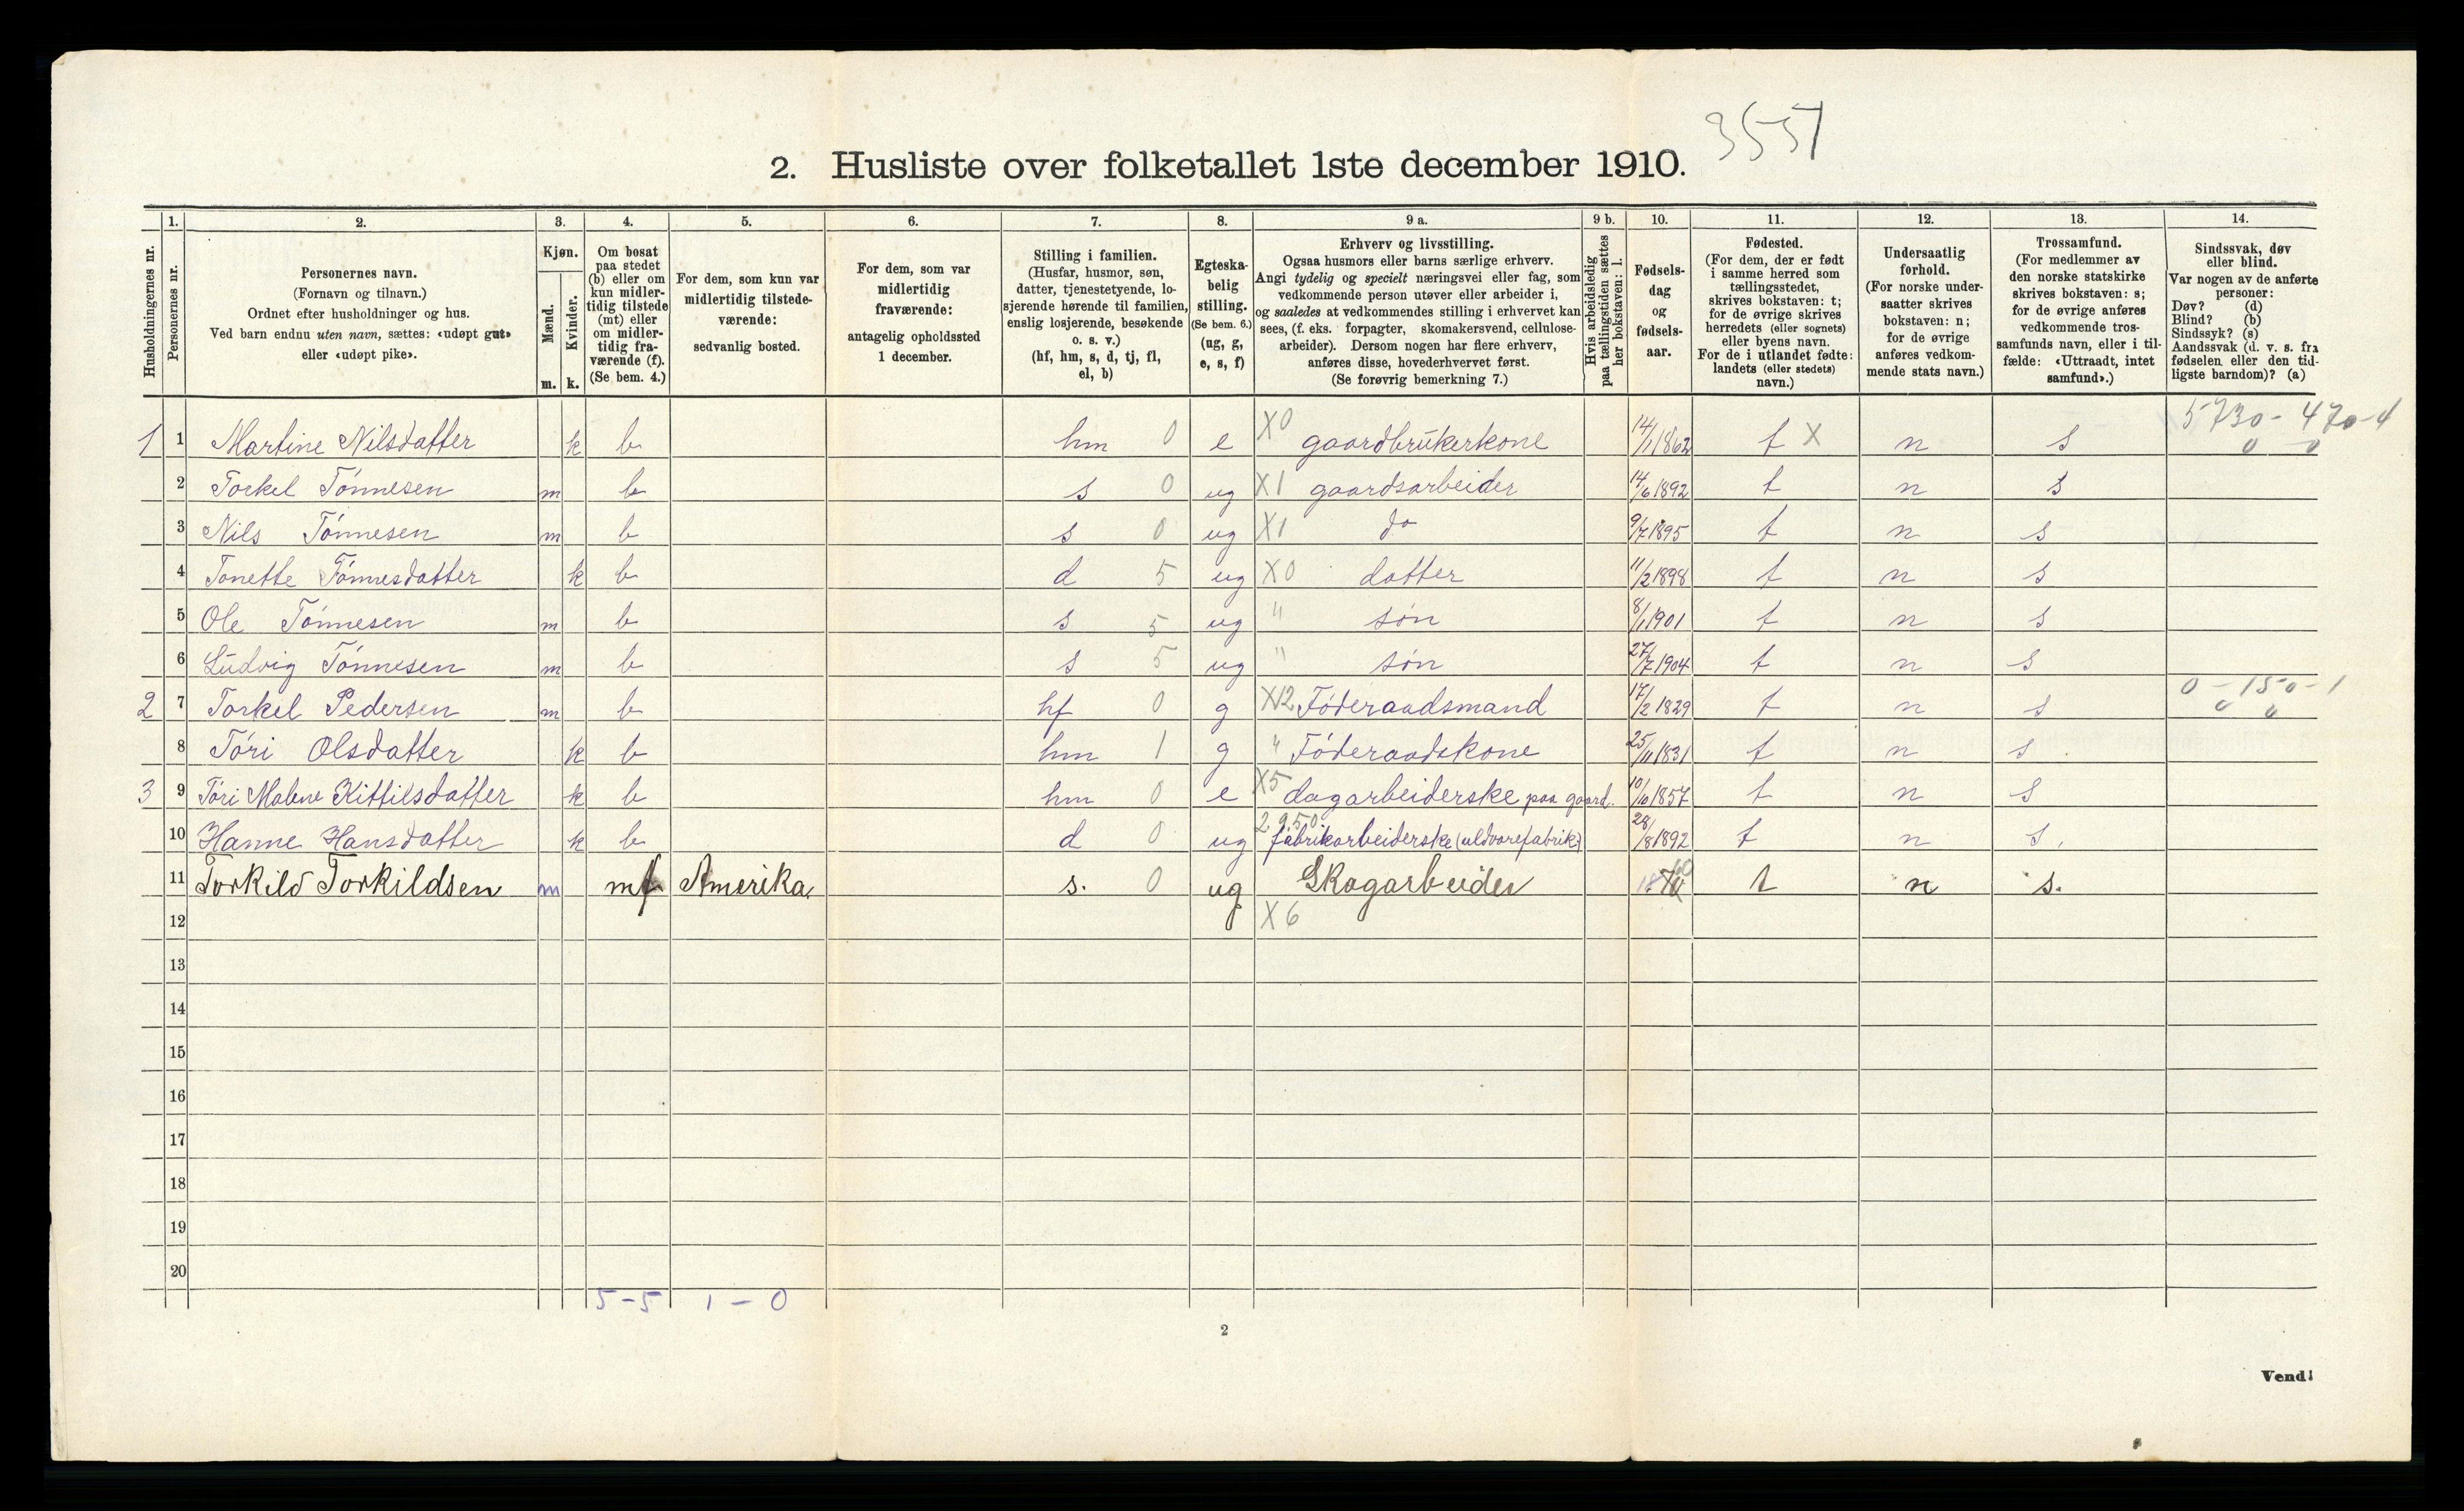 3557
2. Husliste over folketallet 1ste december 1910.
Husholdningernes nr.
1. Personernes nr.
2. Personernes navn.
(Fornavn og tilnavn.)
Ordnet efter husholdninger og hus.
Ved barn endnu uten navn, sættes: «udøpt gut»
eller «udøpt pike».
3. Kjøn.
Mænd. m.
Kvinder. k.
4. Om bosat
paa stedet
(b) eller om
kun midler-
tidig tilstede
(mt) eller
om midler-
tidig fra-
værende (f).
(Se bem. 4.)
5. For dem, som kun var
midlertidig tilstede-
værende:
sedvanlig bosted.
6. For dem, som var
midlertidig
fraværende:
antagelig opholdssted
1 december.
7. Stilling i familien.
(Husfar, husmor, søn,
datter, tjenestetyende, lo-
sjerende hørende til familien,
enslig losjerende, besøkende
o. s. v.)
(hf, hm, s, d, tj, fl,
el, b)
8. Egteska-
belig
stilling.
(Se bem. 6.)
(ug, g,
e, s, f)
9 a. Erhverv og livsstilling.
Ogsaa husmors eller barns særlige erhverv.
Angi tydelig og specielt næringsvei eller fag, som
vedkommende person utøver eller arbeider i,
og saaledes at vedkommendes stilling i erhvervet kan
sees, (f. eks. forpagter, skomakersvend, cellulose-
arbeider). Dersom nogen har flere erhverv,
anføres disse, hovederhvervet først.
(Se forøvrig bemerkning 7.)
9 b. Hvis arbeidsledig
paa tællingstiden sættes
her bokstaven: l.
10. Fødsels-
dag
og
fødsels-
aar.
11. Fødested.
(For dem, der er født
i samme herred som
tællingsstedet,
skrives bokstaven: t;
for de øvrige skrives
herredets (eller sognets)
eller byens navn.
For de i utlandet fødte:
landets (eller stedets)
navn.)
12. Undersaatlig
forhold.
(For norske under-
saatter skrives
bokstaven: n;
for de øvrige
anføres vedkom-
mende stats navn.)
13. Trossamfund.
(For medlemmer av
den norske statskirke
skrives bokstaven: s;
for de øvrige anføres
vedkommende tros-
samfunds navn, eller i til-
fælde: «Uttraadt, intet
samfund».)
14. Sindssvak, døv
eller blind.
Var nogen av de anførte
personer:
Døv? (d)
Blind? (b)
Sindssyk? (s)
Aandssvak (d. v. s. fra
fødselen eller den tid-
ligste barndom)? (a)
1 1 Martine Nilsdatter k b hm 0 e X0 gaardbrukerkone 14/1 1862 t X n s 5730-470-4 0 0
2 Torkel Tönnesen m b s 0 ug X1 gaardsarbeider 14/6 1892 t n s
3 Nils Tönnesen m b s 0 ug X1 do 9/7 1895 t n s
4 Tonette Tönnesdatter k b d 5 ug X0 datter 11/2 1898 t n s
5 Ole Tönnesen m b s 5 ug " sön 8/1 1901 t n s
6 Ludvig Tönnesen m b s 5 ug " sön 27/7 1904 t n s
2 7 Torkel Pedersen m b hf 0 g X12 Föderaadsmand 17/2 1829 t n s 0-150-1 0 0
8 Töri Olsdatter k b hm 1 g " Föderaadskone 25/11 1831 t n s
3 9 Töri Malene Kittilsdatter k b hm 0 e X5 dagarbeiderske paa gaard. 10/10 1857 t n s
10 Hanne Hansdatter k b d 0 ug 2950 fabrikarbeiderske (uldvarefabrik) 28/8 1892 t n s.
11 Torkild Torkildsen m mf Amerika. s. 0 ug Skogarbeider t n s.
12 X6
13
14
15
16
17
18
19
20
5-5 1-0
2
Vend!